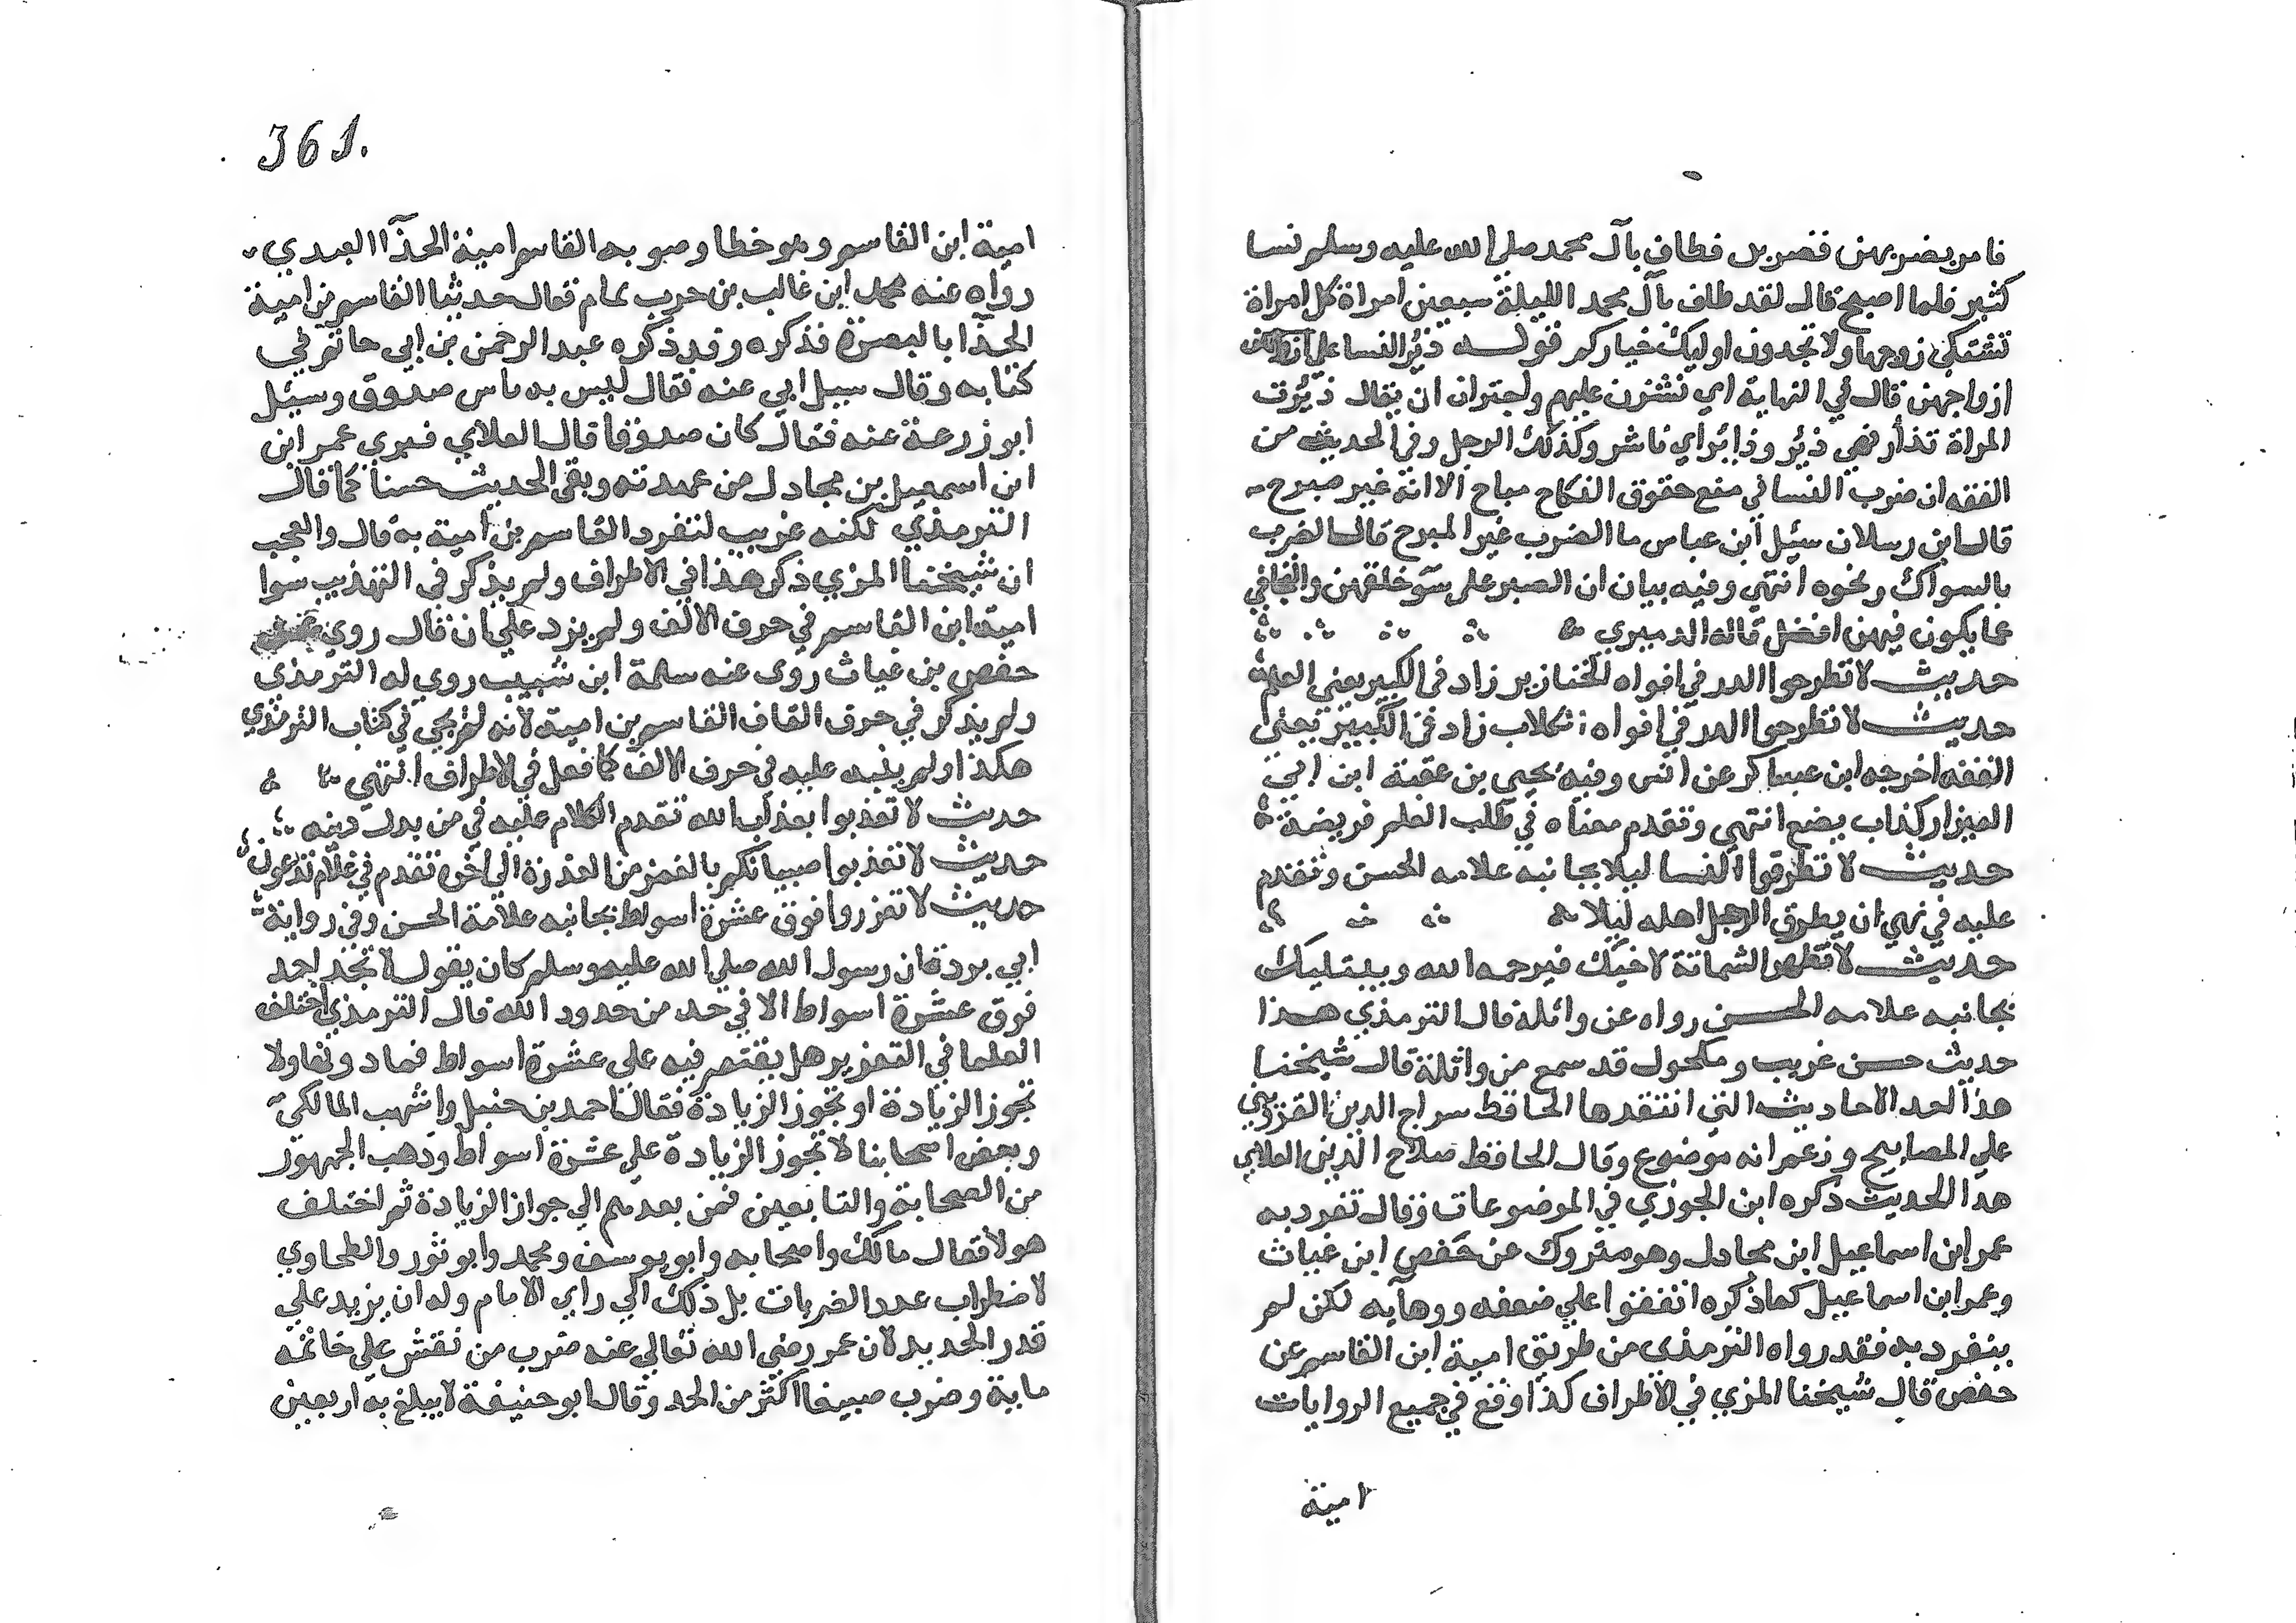 فامر بضربهن فضربن فطاف بآل محمد صلى الله عليه وسلم نسا
كثير فلما اصبح قال لقد طاف بآل محمد الليلة سبعين امراة كل امراة
تشتكي زوجها ولا تجدون اوليك خياركم قوله ذئر النسا على
ازواجهن قال في النهاية اي نشزن عليهم واجتران ان يقال ذئرت
المراة تذأر فهي ذئر وذائر اي ناشز وكذلك الرجل وفي الحديث من
الفقه ان ضرب النسا في منع حقوق النكاح مباح الا انه غير مبرح
قال ابن رسلان سئل ابن عباس ما الضرب غير المبرح قال الضرب
بالسواك ونحوه انتهي وفيه بيان ان الصبر على سوء خلقهن والتجافي
عما يكون فيهن افضل قاله الدميري
حديث لا تطرحوا الدر في افواه الخنازير زاد في الكبير يعني العلم
حديث لا تطرحوا الدر في افواه الكلاب زاد في الكبير يعني
الفقه اخرجه ابن عساكر عن انس وفيه يحيى بن عقبة ابن ابي
العيزار كذاب يضع انتهي وتقدم معناه في طلب العلم فريضة
حديث لا تطرقوا النسا ليلا بجانبه علامه الحسن وتقدم
عليه في نهي ان يطرق الرجل اهله ليلا
حديث لا تظهر الشماتة لاخيك فيرحمه الله ويبتليك
بجانبه علامه الحسن رواه عن واثلة قال الترمذي هذا
حديث حسن غريب ومكحول قد سمع من واثلة قال شيخنا
هذا احد الاحاديث التي انتقدها الحافظ سراج الدين القزويني
على المصابيح وزعم انه موضوع وقال الحافظ صلاح الدين العلاي
هذا الحديث ذكره ابن الجوزي في الموضوعات وقال تفرد به
عمر ابن اسماعيل ابن مجادل وهو متروك عن حفص ابن غياث
وعمر ابن اسماعيل كما ذكره اتفقوا علي ضعفه ووهايه لكن لم
ينفرد به فقد رواه الترمذي من طريق امية ابن القاسم عن
حفص قال شيخنا المزي في الاطراف كذا وقع في جميع الروايات
امية
361.
امية ابن القاسم وهو خطا وصوابه القاسم امية الحذآ العبدي
رواه عنه محمد ابن غالب بن حرب تمام فقال حدثنا القاسم بن امية
الحذا بالبصرة فذكره وقد ذكره عبد الرحمن بن ابي حاتم في
كتابه وقال سيل ابي عنه فقال ليس به باس صدوق وسئل
ابو زرعة عنه فقال كان صدوقا قال العلاي فبري عمر ابن
ابن اسمعيل بن مجادل من عهدته وبقي الحديث حسنا كما قال
الترمذي لكنه غريب لتفرد القاسم بن امية به قال والعجب
ان شيخنا المزي ذكر هذا في الاطراف ولم يذكر في التهذيب سوا
امية ابن القاسم في حرف الالف ولم يزد علي ان قال روي عن
حفص بن غياث روى عنه سلمة ابن شبيب روي له الترمذي
ولم يذكر في حرف القاف القاسم بن امية لانه لم يجي في كتاب الترمذي
هكذا ولم ينبه عليه في حرف الالف كما فعل في الاطراف انتهى
حديث لا تعذبوا بعذاب الله تقدم الكلام عليه في من بدل دينه
حديث لا تعذبوا صبيانكم بالغمز من العذرة الي اخره تقدم في علام تدغرن
حديث لا تعزروا فوق عشرة اسواط بجانبه علامة الحسن وفي رواية
ابي بردة ان رسول الله صلي الله عليه وسلم كان يقول لا تجلد احد
فوق عشرة اسواط الا في حد من حدود الله قال الترمذي اختلف
العلما في التعزير هل يقتصر فيه على عشرة اسواط فما دونها ولا
تجوز الزيادة او تجوز الزيادة فقال احمد بن حنبل واشهب المالكي
وبعض اصحابنا لا تجوز الزيادة على عشرة اسواط وذهب الجمهور
من الصحابة والتابعين فمن بعدهم الي جواز الزيادة ثم اختلف
هولا فقال مالك واصحابه وابو يوسف ومحمد وابو ثور والطحاوي
لا ضطراب عدد الضربات بل ذلك الي راي الامام وله ان يزيد علي
قدر الحد لان عمر رضي الله تعالي عنه ضرب من نقش علي خاتمه
ماية وضرب صبيغا اكثر من الحد وقال ابو حنيفة لا يبلغ به اربعين